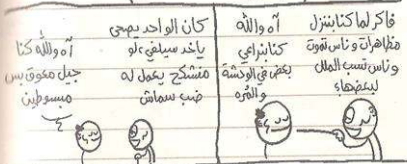 فاكر لما كنا بننزل
مظاهرات وناس تموت
وناس تسب الملل
لبعضها؟
آه والله
كنا بنراعي
بعض في الوحشة
والمُرة
كان الواحد يصحى
ياخد سيلفي، لو
منشكح يعمل له
ضب سماش
آه والله كنا
جيل معوق بس
مبسوطين